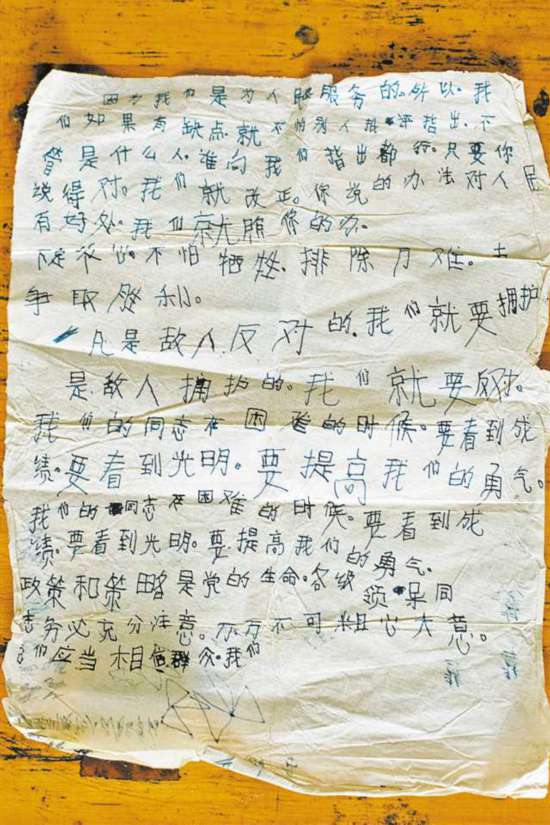 因为我们是为人民服务的。所以。我
们如果有缺点就不怕别人批评指出。不
管是什么人。谁向我们指出都行。只要你
说得对。我们就改正。你说的办法对人民
有好处。我们就照你的办。
下定决心。不怕牺牲。排除万难。去
争取胜利。
凡是敌人反对的。我们就要拥护
是敌人拥护的。我们就要反对。
我们的同志在困难的时候。要看到成
绩。要看到光明。要提高我们的勇气。
我们的同志在困难的时候。要看到成
绩。要看到光明。要提高我们的勇气。
政策和策略是党的生命。各级领导同
志务必充分注意。万万不可粗心大意。
们应当相信群众。我们